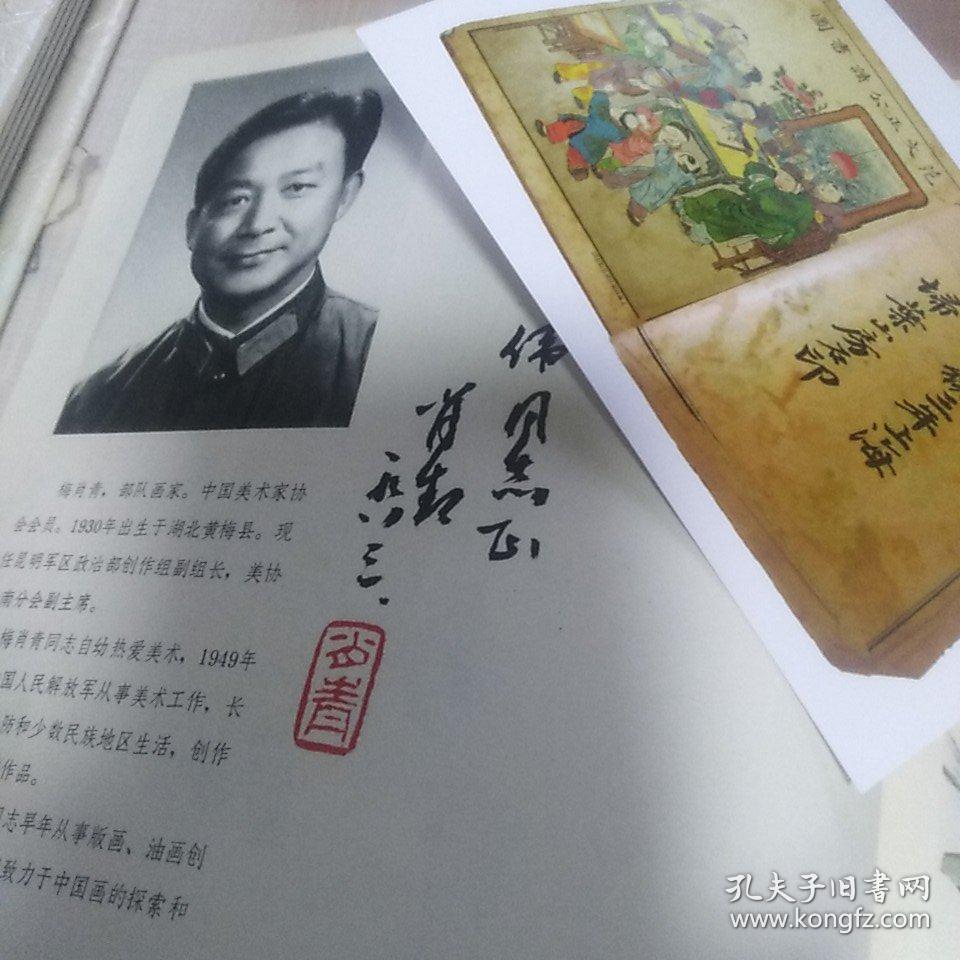 梅肖青，部队画家。中国美术家协
会会员。1930年出生于湖北黄梅县。现
任昆明军区政治部创作组副组长，美协
南分会副主席。
梅肖青同志自幼热爱美术，1949年
国人民解放军从事美术工作，长
防和少数民族地区生活，创作
作品。
同志早年从事版画、油画创
致力于中国画的探索和
伟
同志正
肖青
八三.
肖青
范文正公請書圖
上海
掃葉山房印
孔夫子旧书网
www.kongfz.com